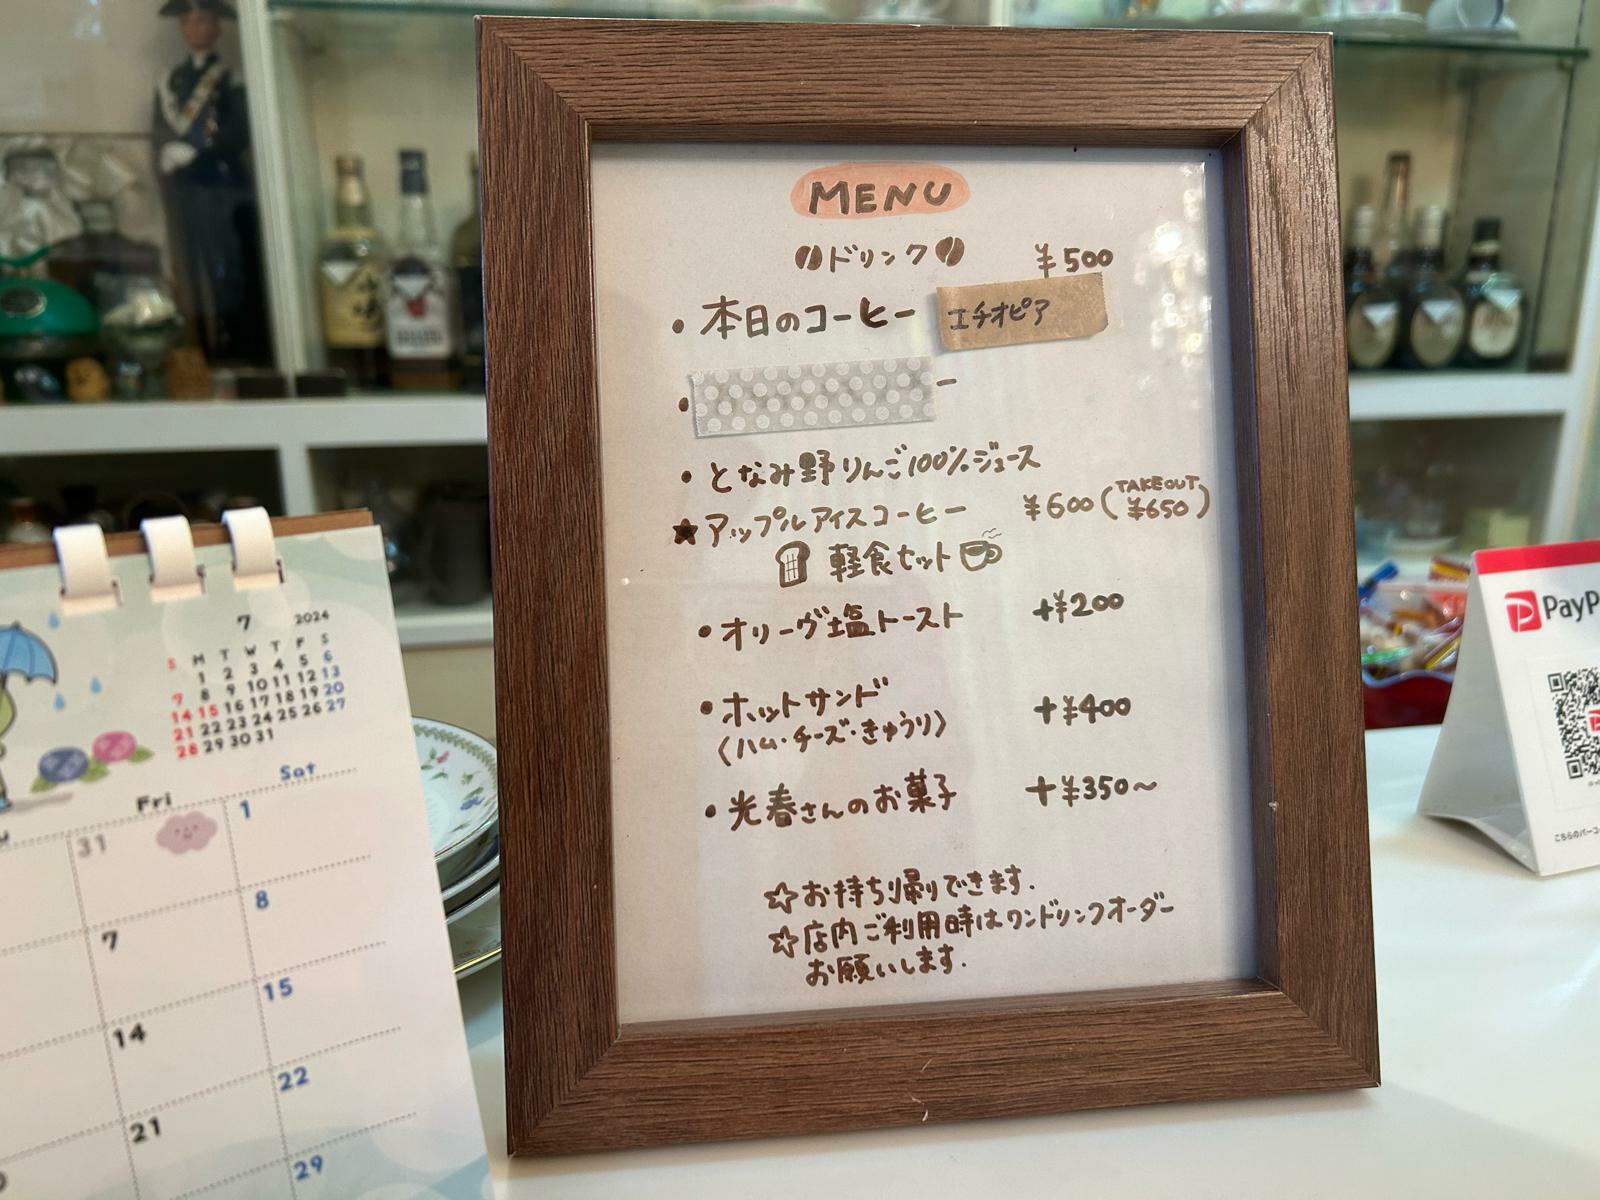 MENU
ドリンク ¥500
・本日のコーヒー エチオピア
・ ー
・となみ野りんご100%ジュース
★アップルアイスコーヒー ¥600(TAKEOUT ¥650)
軽食セット
・オリーヴ塩トースト +¥200
・ホットサンド +¥400
(ハム・チーズ・きゅうり)
・光春さんのお菓子 +¥350〜
☆お持ち帰りできます.
☆店内ご利用時はワンドリンクオーダー
お願いします.
7 2024
S M T W T F S
1 2 3 4 5 6
7 8 9 10 11 12 13
14 15 16 17 18 19 20
21 22 23 24 25 26 27
28 29 30 31
Fri Sat
31 1
7 8
14 15
21 22
29
PayP